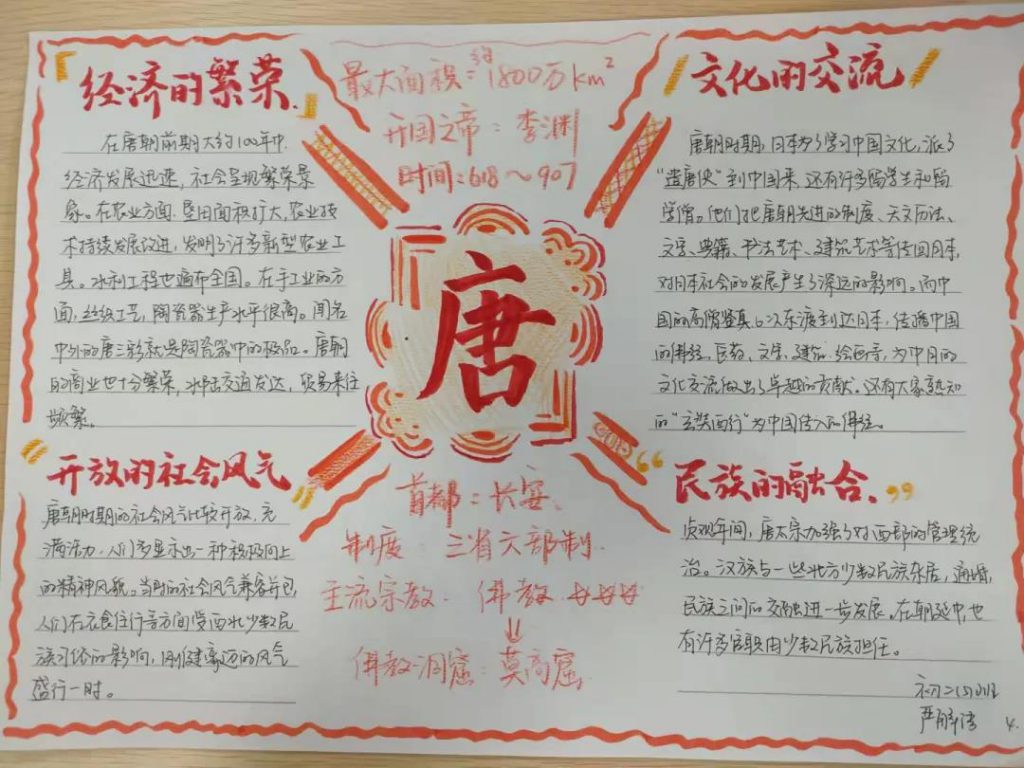 经济的繁荣
在唐朝前期大约100年中
经济发展迅速，社会呈现繁荣景
象。在农业方面，垦田面积扩大，农业技
术持续发展改进，发明了许多新型农业工
具。水利工程也遍布全国。在手工业的方
面，丝织工艺，陶瓷器生产水平很高。闻名
中外的唐三彩就是陶瓷器中的极品。唐朝
的商业也十分繁荣，水陆交通发达，贸易来往
频繁。
开放的社会风气
唐朝时期的社会风气比较开放，充
满活力，人们多显示出一种积极向上
的精神风貌。当时的社会风气兼容并包，
人们在衣食住行等方面受西北少数民
族习俗的影响，刚健豪迈的风气
盛行一时。
最大面积：约1800万km²
开国之帝：李渊
时间：618～907
唐
首都：长安
制度：三省六部制.
主流宗教：佛教
佛教洞窟：莫高窟
文化的交流
唐朝时期，日本为了学习中国文化，派了
“遣唐使”到中国来，还有许多留学生和留
学僧。他们把唐朝先进的制度、天文历法、
文字、典籍、书法艺术、建筑艺术等传回日本，
对日本社会的发展产生了深远的影响。而中
国的高僧鉴真，6次东渡到达日本，传播中国
的佛经、医药、文学、建筑、绘画等，为中日的
文化交流做出了卓越的贡献。还有大家熟知
的“玄奘西行”为中国传入的佛经。
民族的融合
贞观年间，唐太宗加强了对西部的管理统
治。汉族与一些北方少数民族杂居，通婚，
民族之间的交融进一步发展。在朝廷中，也
有许多官职由少数民族担任。
初二(5)班
4.